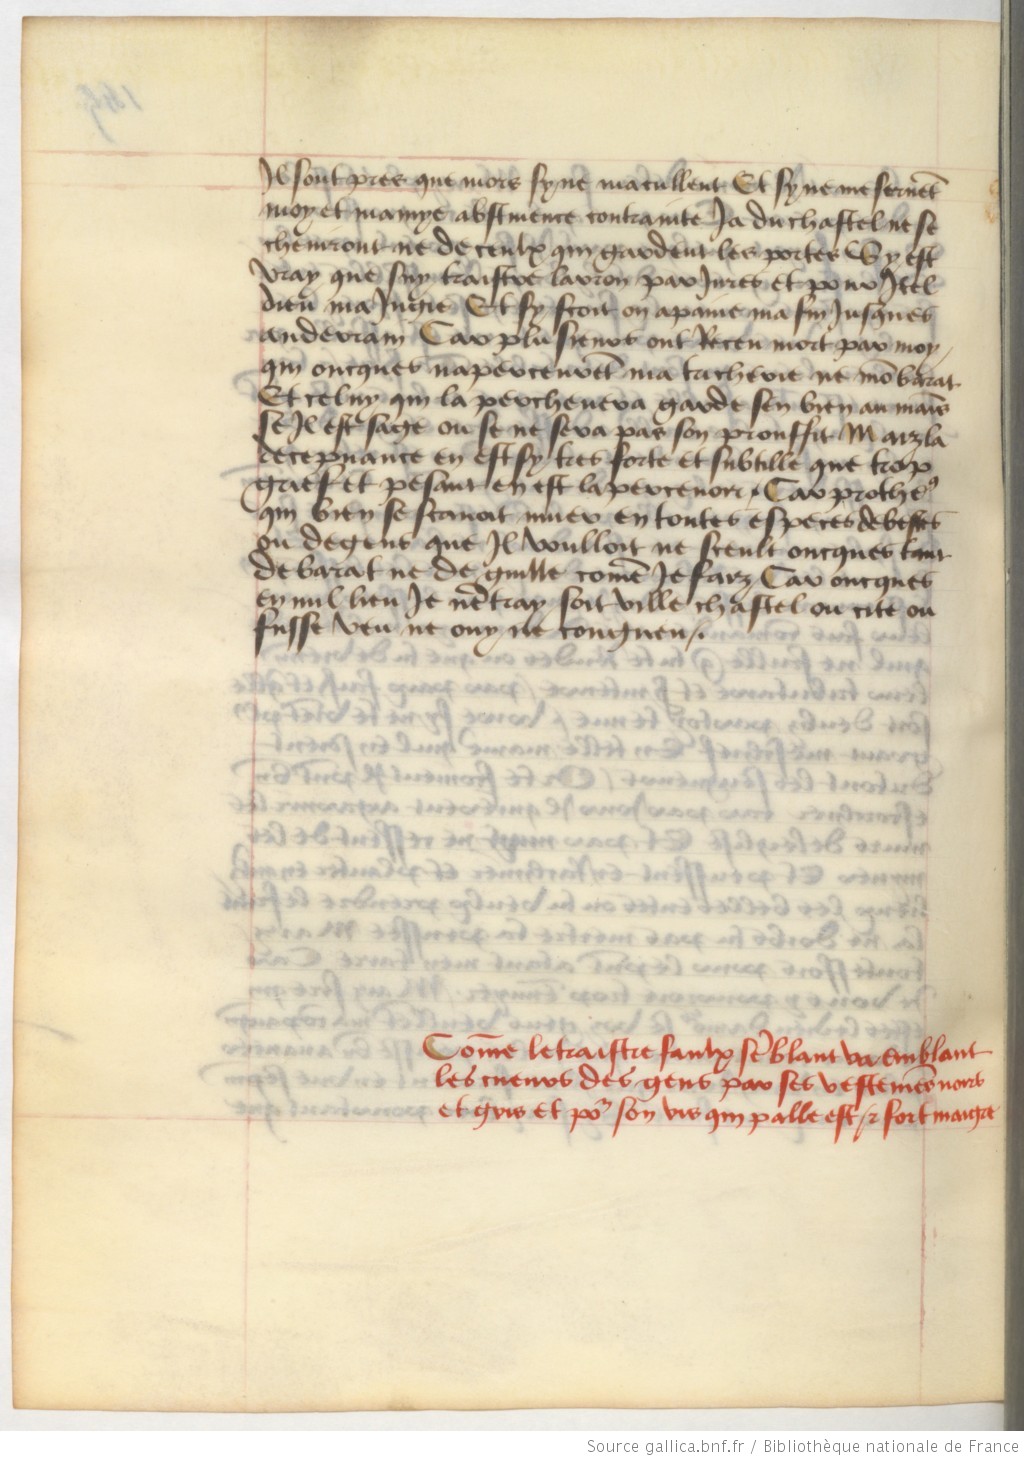 Il sont pres que mors sy ne macuillent Et sy ne me servẽt
moy et mamye abstinence contrainte Ja du chastel ne se
cheviront ne de ceulx qui gardent les portes Sy est
vray que suy traistre larron parjures et pour Itel
dieu ma Jugie Et sy scoit on apaine ma fin Jusques
au derrain Car plusieurs ont Receu mort par moy
qui oncques napperceurẽt ma tricherie ne mõ barat
Et celuy qui la perchevera garde sen bien au mains
se Il est sage ou se ne sera pas son prouffit Maiz la
decepvance en est sy tres forte et subtille que trop
grief et pesant en est lapercevoir / Car protheꝰ
qui bien se scavoit muer en toutes especes de bestes
ou de gens que Il voulloit ne sceult oncques tant
de barat ne de guille comẽ Je faiz Car oncques
en nul lieu Je nẽtray soit ville chastel ou cite ou
fusse veu ne ouy ne congneu /.
Com̃e le traistre faulx sẽblant va emblant
les cueurs des gens par ses vestemẽs noirs
et gris et põ son vis qui palle est / ⁊ fort maigre
Source gallica.bnf.fr / Bibliothèque nationale de France